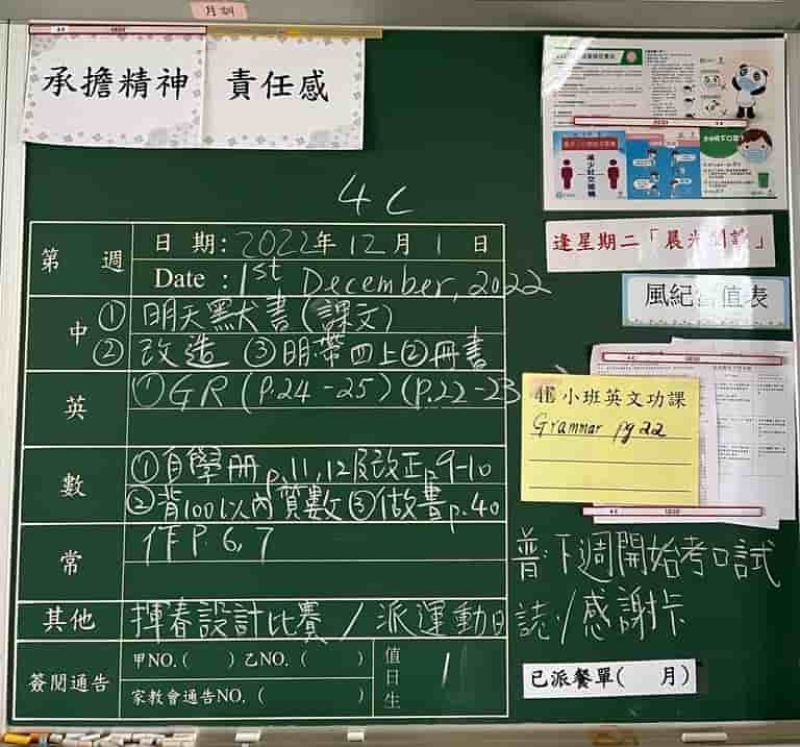 月訓
承擔精神
責任感
減少社交接觸
4C
第 週
日 期: 2022年 12月 1 日
Date : 1st December, 2022
逢星期二「晨光閱讀」
風紀當值表
中 ① 明天默書(課文)
② 改造 ③明帶四上②冊書
英 ①GR (P.24-25) (P.22-23
小班英文功課
Grammar pg 22
數 ①自學冊 p.11,12及改正p.9-10
②背100以內質數 ③做書p.40
常 作P.6,7
普:下週開始考口試
其他 揮春設計比賽 / 派運動日誌 / 感謝卡
簽閱通告 甲NO.( ) 乙NO. ( )
家教會通告NO. ( )
值日生 1
已派餐單( 月)